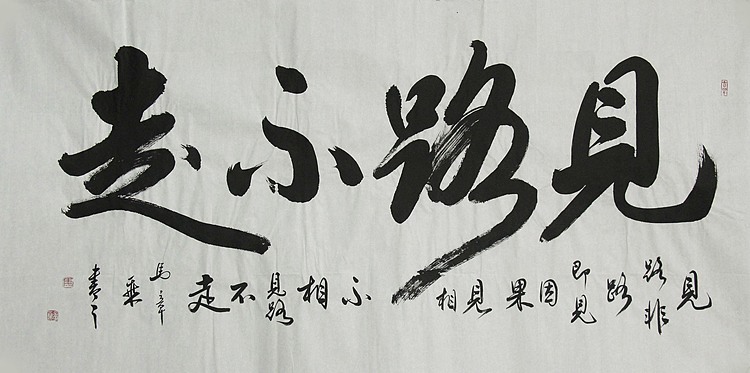 見路不走
見路非路即見因果見相不相見路不走馬章乘書之